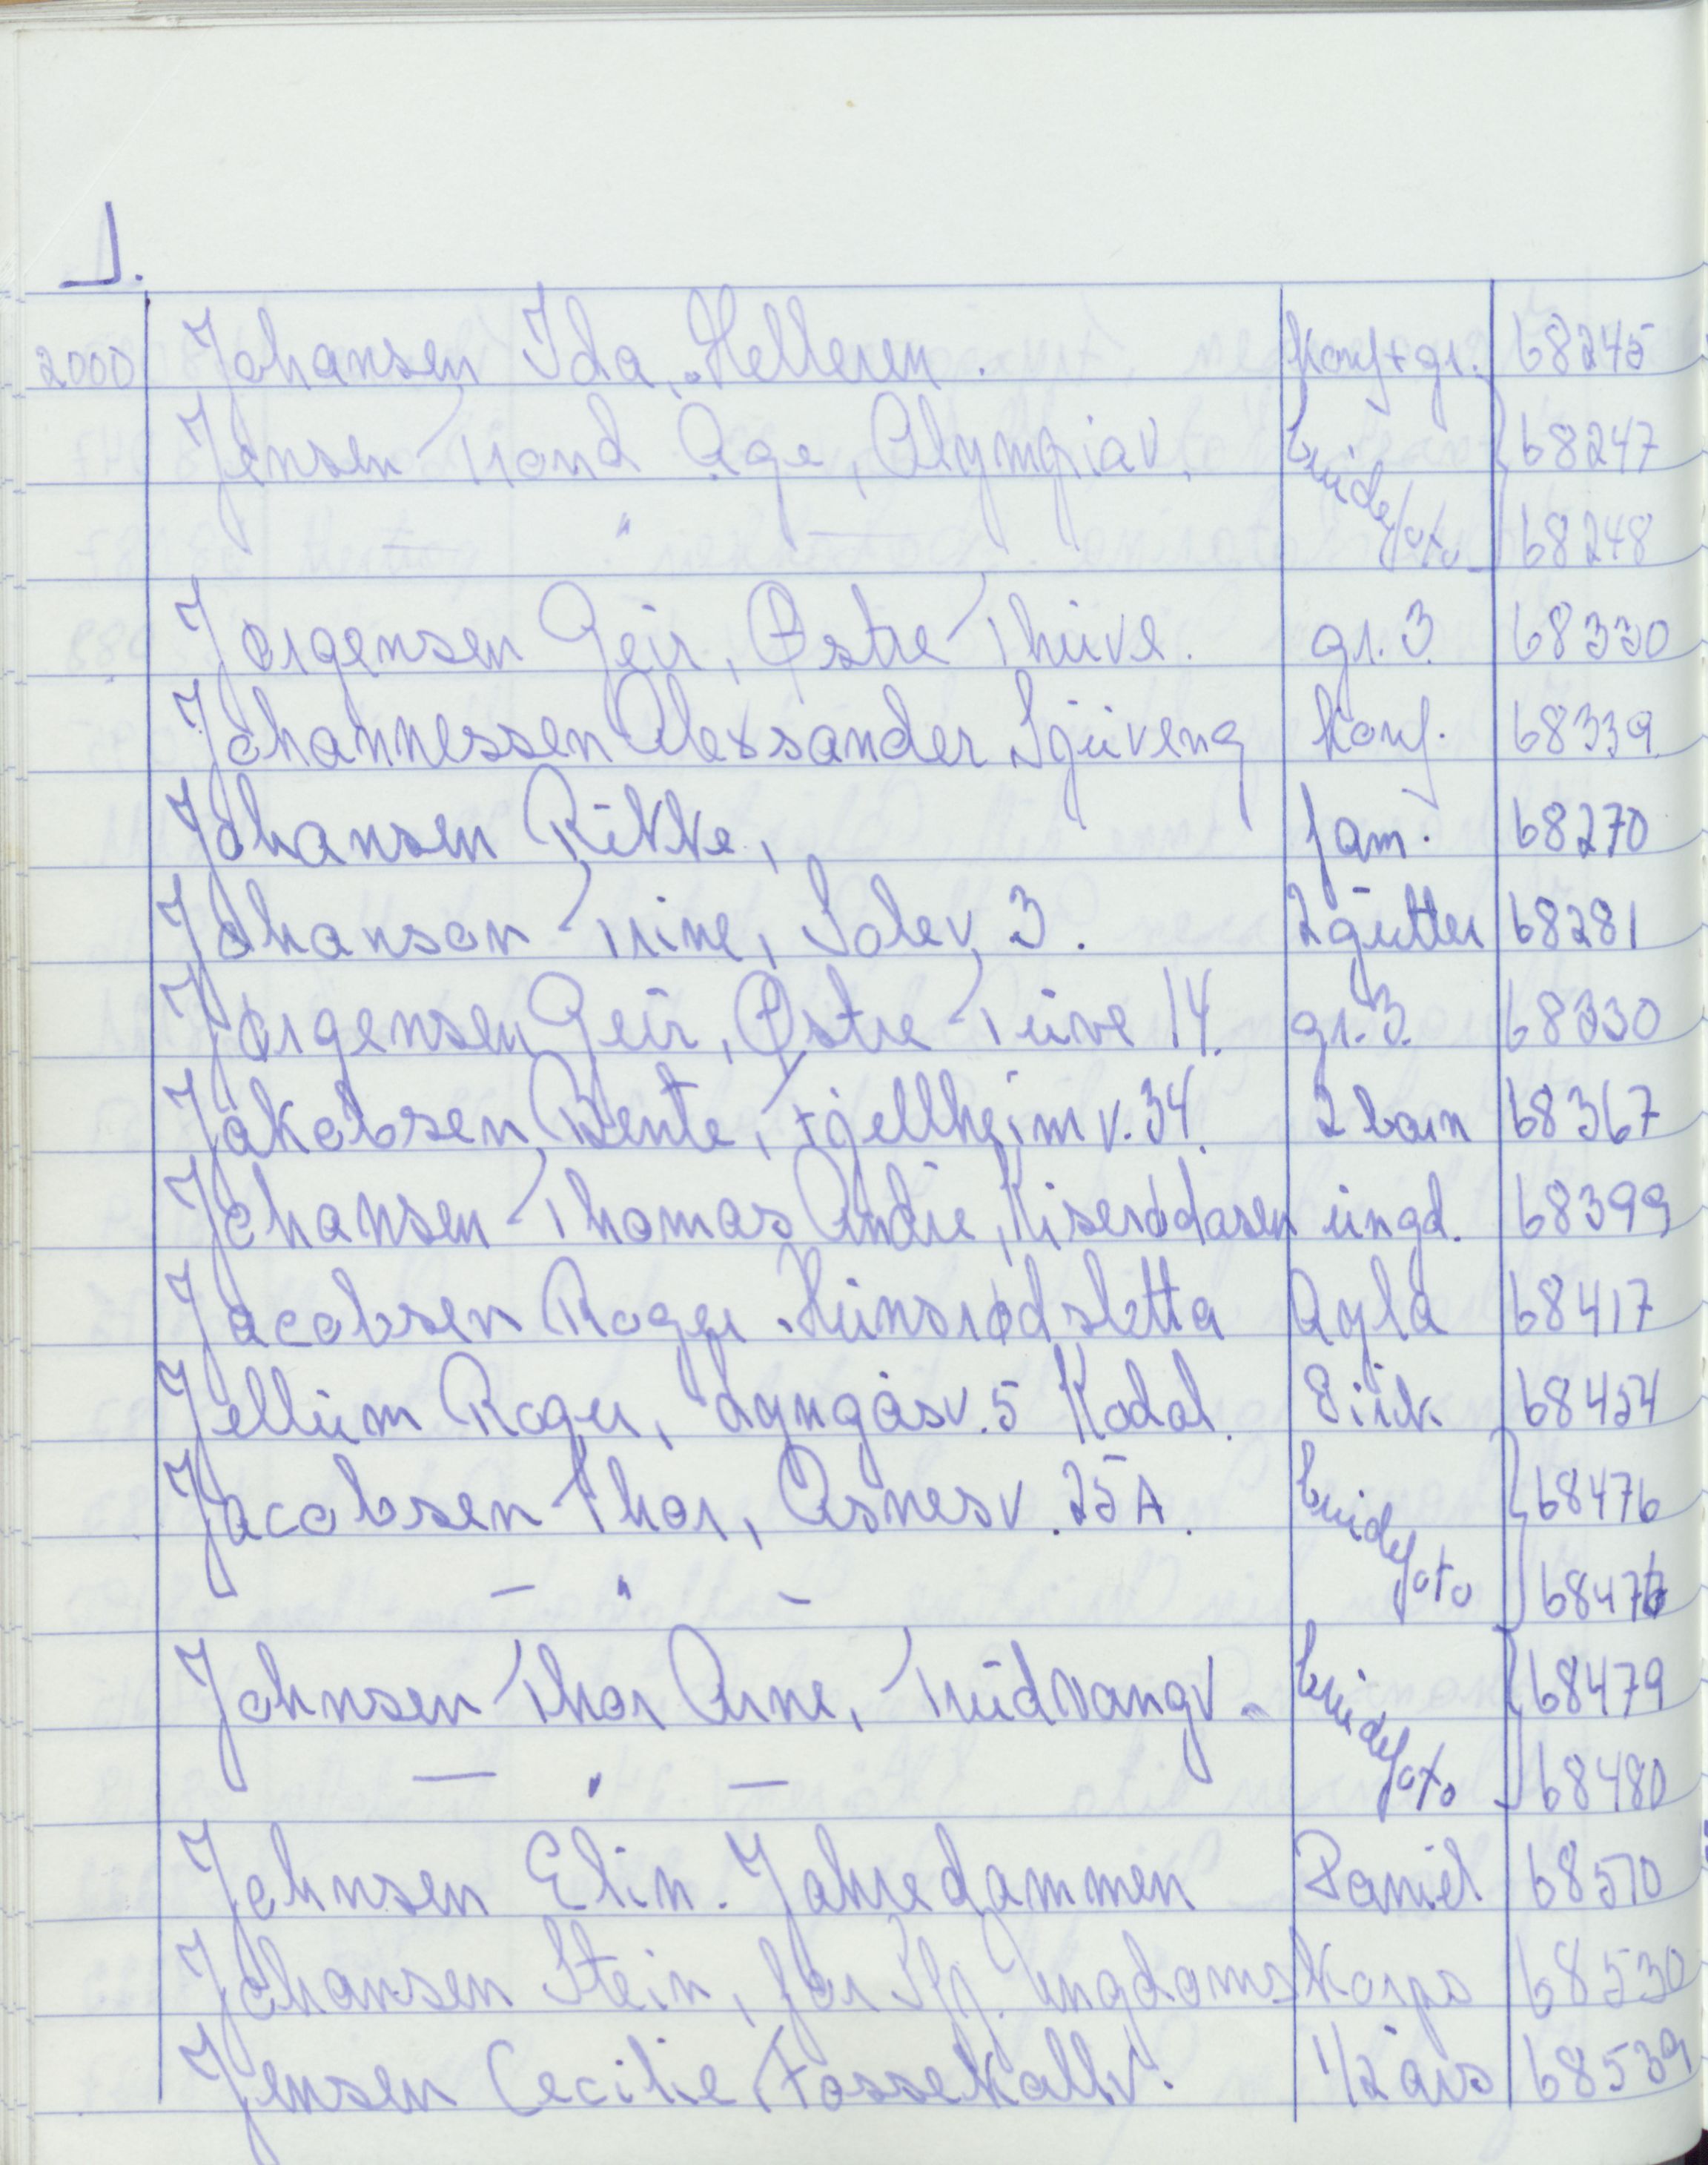 J.
2000 Johansen Ida, Helleren. Konf+gr. 68245
Jensen Trond Åge, Olympiav. brudefoto 68247
" — 68248
Jørgensen Geir, Østre Thuve. gr. 3. 68330
Johannessen Alexsander Sjuveng Konf. 68339
Johansen Rikke, fam. 68270
Johanson Trine, Solev 3. 2 gutter 68281
Jørgensen Geir, Østre Tuve 14. gr. 3. 68330
Jakobsen Bente, Fjellheimv. 34. 2 barn 68367
Johansen Thomas Andre, Kiserødåsen ungd. 68399
Jacobsen Roger Hunsrødsletta Ayla 68417
Jellum Roger, Lyngåsv. 5 Kodal. 68454
Jacobsen Thor, Åsnesv. 25A. brudefoto 68476
— " —
Johnsen Thor Arne, Trudvangv. brudefoto 68479
— " — 68480
Johnsen Elin. Jahredammen Daniel 68510
Johansen Stein, for Ungdomskorps 68530
Jensen Cecilie, Fossekallv. 1/2 års 68539